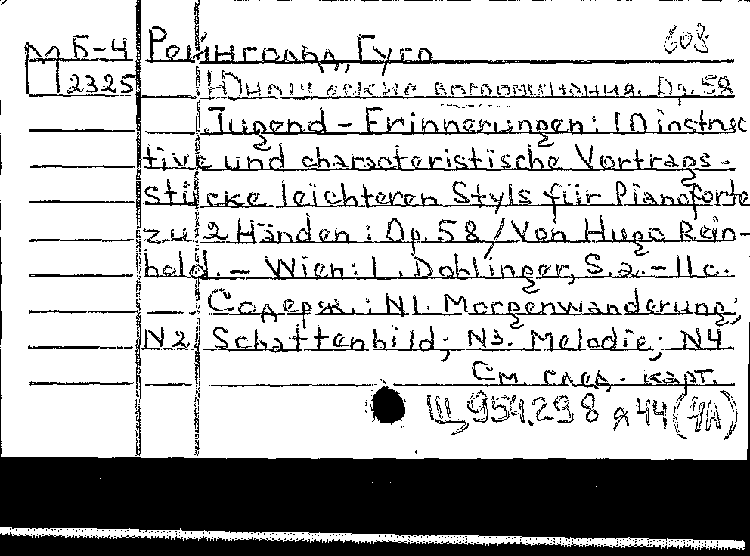 603
М Б-4 Рейнгольд, Гуго
2325 Юношеские воспоминания. Ор. 58
Jugend-Erinnerungen: 10 instruc
tive und characteristische Vortrags-
stücke leichteren Styls für Pianoforte
zu 2 Händen: Op. 58 / Von Hugo Rein-
hold. - Wien: L. Doblinger, S. a. - 11 c.
Содерж.: N1. Morgenwanderung;
N2 Schattenbild; N3. Melodie; N4
См. след. карт.
Щ954.298 я44(4А)